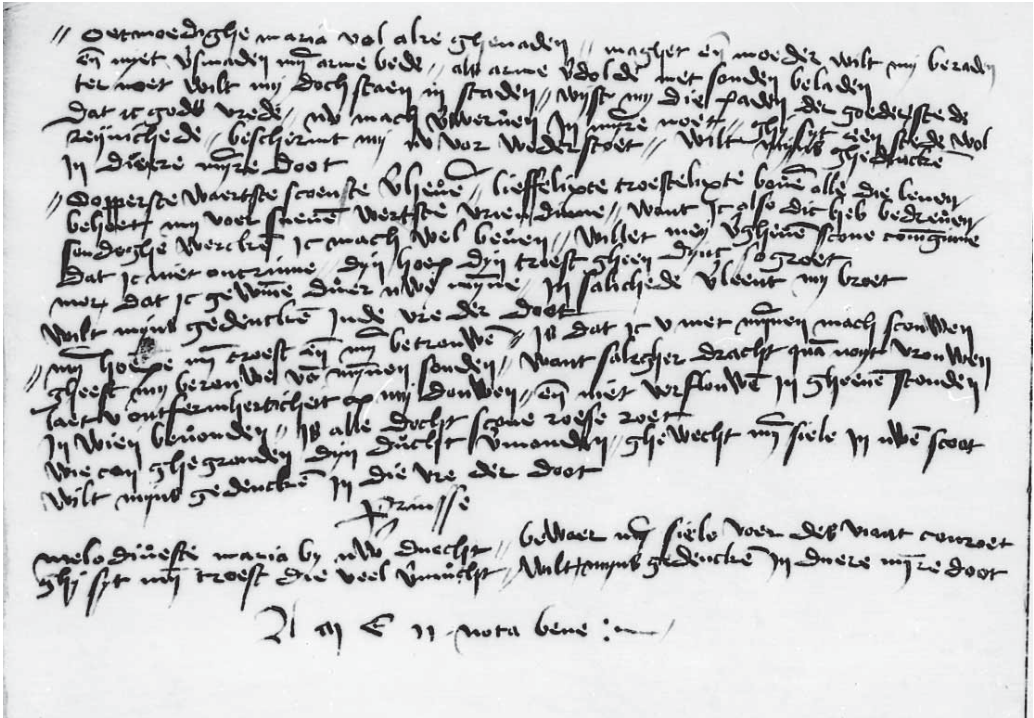 // Oetmoedighe maria vol alre ghenaden // maghet en̄ moeder wilt my beraden
en̄ niet v̄smaden mȳ arme bede // als arme v̄dolde met sonden beladen
ter noet wilt my doch staen in staden // wijst my die paden der goederste de
dat ic gods vrede // nv mach v̄werven In mȳre noet // ghi syt een stede vol
reynichede // beschermt my nv vor wederstoet // wilt myns ghedinckē
In duere mȳre doot
// Sopperste waertste scoenste v̄heuē // lieffelixte troestelixte bouē alle die leuen
behoet my voer sneuē wertste vriendinne // want Ic also dic heb bedreuen
sondighe werckē ic mach wel beuen // willet mey v̄gheuē scone cōmginne
dat ic niet ontrinne // dyn hoep dyn troest gheen dync so groet
mer dat ic gewīne duer uwe mȳne // In salichede v̄leent my broet
wilt myns gedenckē Inde vre der doot
// mȳ hoepe mȳ troest en̄ mȳ betrouwē // Is dat ic v met mȳnen mach scouwen
gheeft my berouwe vā mȳnen sonden // want salicher dracht quā noyt vrouwen
laet v ontfermherticheit op my douwen // en̄ niet verflouwē In gheenē stonden
In wien beuonden // Is alle docht scone roese roet
wie can ghegronden dyn ducht v̄monden // ghewecht mȳ siele In uwē scoot
wilt myns gedenckē In die vre der doot
Prinsse
melodiueste maria by uw duecht // bewaer mȳ siele voer des viant conroet
ghy syt mȳ troest die veel v̄mucht // wilt myns gedenckē In duere mȳre doot
A M E N nota bene :~